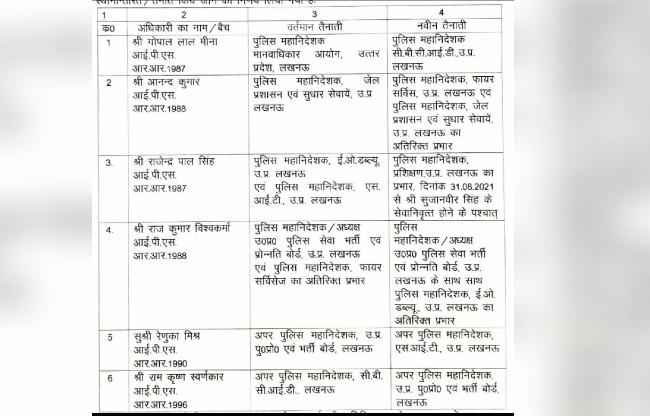 स्थानान्तरित / तैनात किये जाने का निर्णय लिया गया है:
1 2 3 4
क0 अधिकारी का नाम / बैच वर्तमान तैनाती नवीन तैनाती
1 श्री गोपाल लाल मीना
आई.पी.एस.
आर.आर.1987
पुलिस महानिदेशक
मानवाधिकार आयोग, उत्तर
प्रदेश, लखनऊ
पुलिस महानिदेशक
सी.बी.सी.आई.डी.,उ.प्र.
लखनऊ
2 श्री आनन्द कुमार
आई.पी.एस.
आर.आर.1988
पुलिस महानिदेशक, जेल
प्रशासन एवं सुधार सेवायें, उ.प्र
लखनऊ
पुलिस महानिदेशक, फायर
सर्विस, उ.प्र. लखनऊ एवं
पुलिस महानिदेशक, जेल
प्रशासन एवं सुधार सेवायें,
उ.प्र. लखनऊ का
अतिरिक्त प्रभार
3. श्री राजेन्द्र पाल सिंह
आई.पी.एस.
आर.आर.1987
पुलिस महानिदेशक, ई.ओ.डब्ल्यू.
उ.प्र. लखनऊ
एवं पुलिस महानिदेशक, एस.
आई.टी., उ.प्र. लखनऊ
पुलिस महानिदेशक,
प्रशिक्षण,उ.प्र. लखनऊ का
प्रभार, दिनांक 31.08.2021
से श्री सुजानवीर सिंह के
सेवानिवृत्त होने के पश्चात्
4. श्री राज कुमार विश्वकर्मा
आई.पी.एस.
आर.आर.1988
पुलिस महानिदेशक / अध्यक्ष
उ0प्र0 पुलिस सेवा भर्ती एवं
प्रोन्नति बोर्ड, उ.प्र. लखनऊ
एवं पुलिस महानिदेशक, फायर
सर्विसेज का अतिरिक्त प्रभार
पुलिस
महानिदेशक / अध्यक्ष
उ0प्र0 पुलिस सेवा भर्ती
एवं प्रोन्नति बोर्ड, उ.प्र.
लखनऊ के साथ साथ
पुलिस महानिदेशक, ई.ओ.
डब्ल्यू., उ.प्र. लखनऊ का
अतिरिक्त प्रभार
5 सुश्री रेणुका मिश्र
आई.पी.एस.
आर.आर.1990
अपर पुलिस महानिदेशक, उ.प्र.
पु0प्रो0 एवं भर्ती बोर्ड, लखनऊ
अपर पुलिस महानिदेशक,
एस.आई.टी., उ.प्र. लखनऊ
6 श्री राम कृष्ण स्वर्णकार
आई.पी.एस.
आर.आर.1996
अपर पुलिस महानिदेशक, सी.बी.
सी.आई.डी., लखनऊ
अपर पुलिस महानिदेशक,
उ.प्र. पु0प्रो0 एवं भर्ती बोर्ड,
लखनऊ